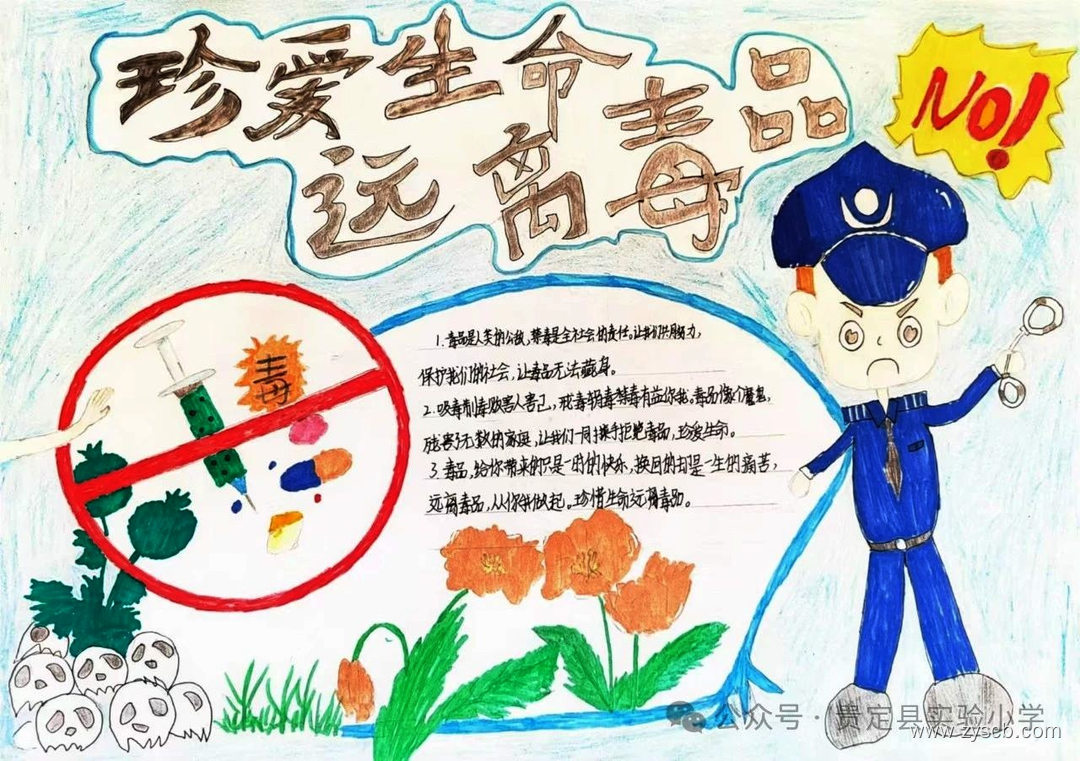 珍爱生命
远离毒品
NO!
毒
1. 毒品是人类的公敌,禁毒是全社会的责任,让我们共同努力,
保护我们的社会,让毒品无法藏身。
2. 吸毒制毒贩害人害己,戒毒销毒禁毒有益你我。毒品像个魔鬼,
残害了无数的家庭,让我们一同携手拒绝毒品,珍爱生命。
3. 毒品,给你带来的只是一时的快乐,换回的却是一生的痛苦,
远离毒品,从你我做起。珍惜生命远离毒品。
公众号·贵定县实验小学
www.zyscb.com